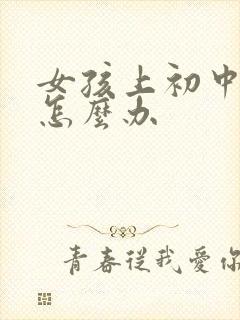 女孩上初中
怎麼办
青春从我爱你